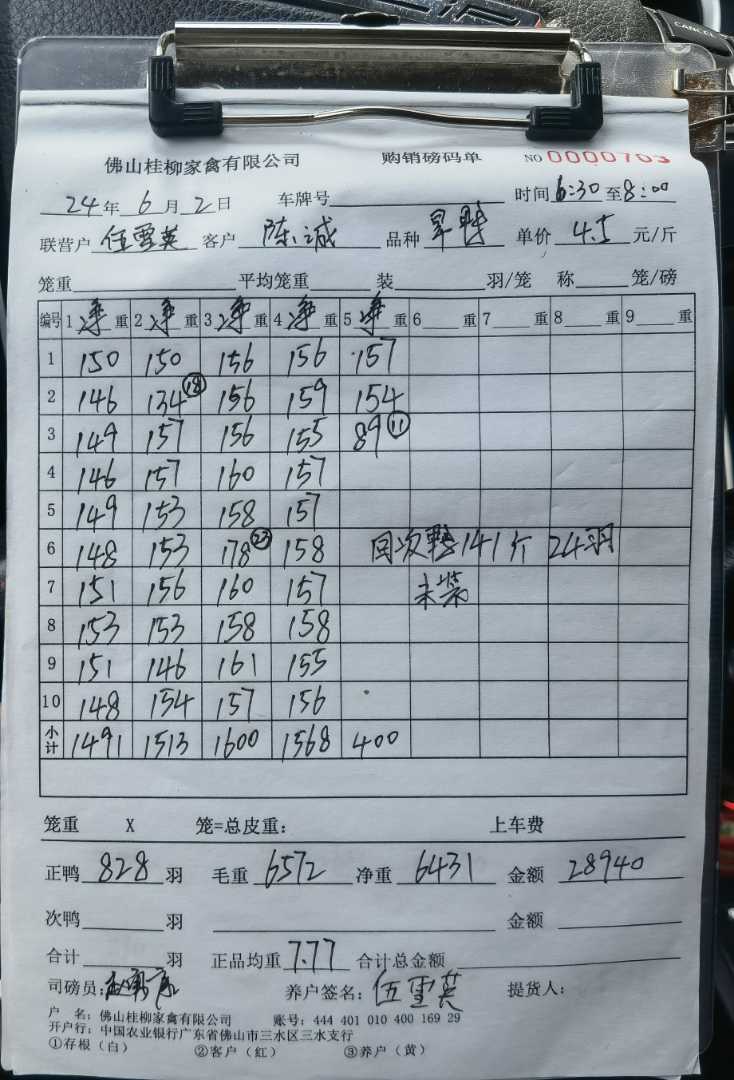 CANCEL
佛山桂柳家禽有限公司 购销磅码单 NO 0000703
24年6月2日 车牌号 时间6:30至8:00
联营户 伍雪英 客户 陈诚 品种 单价 4.5 元/斤
笼重 平均笼重 装 羽/笼 称 笼/磅
编号 1 净重 2 净重 3 净重 4 净重 5 净重 6 重 7 重 8 重 9 重
1 150 150 156 156 157
2 146 134 ⑱ 156 159 154
3 149 157 156 155 89 ⑪
4 146 157 160 157
5 149 153 158 157
6 148 153 178 ㉓ 158 回次鸭141斤 24羽
7 151 156 160 157 未装
8 153 153 158 158
9 151 146 161 155
10 148 154 157 156
小计 1491 1513 1600 1568 400
笼重 X 笼=总皮重: 上车费
正鸭 828 羽 毛重 6572 净重 6431 金额 28940
次鸭 羽 金额
合计 羽 正品均重 7.77 合计总金额
司磅员: 养户签名: 伍雪英 提货人:
户 名: 佛山桂柳家禽有限公司 账号: 444 401 010 400 169 29
开户行: 中国农业银行广东省佛山市三水区三水支行
①存根(白) ②客户(红) ③养户(黄)